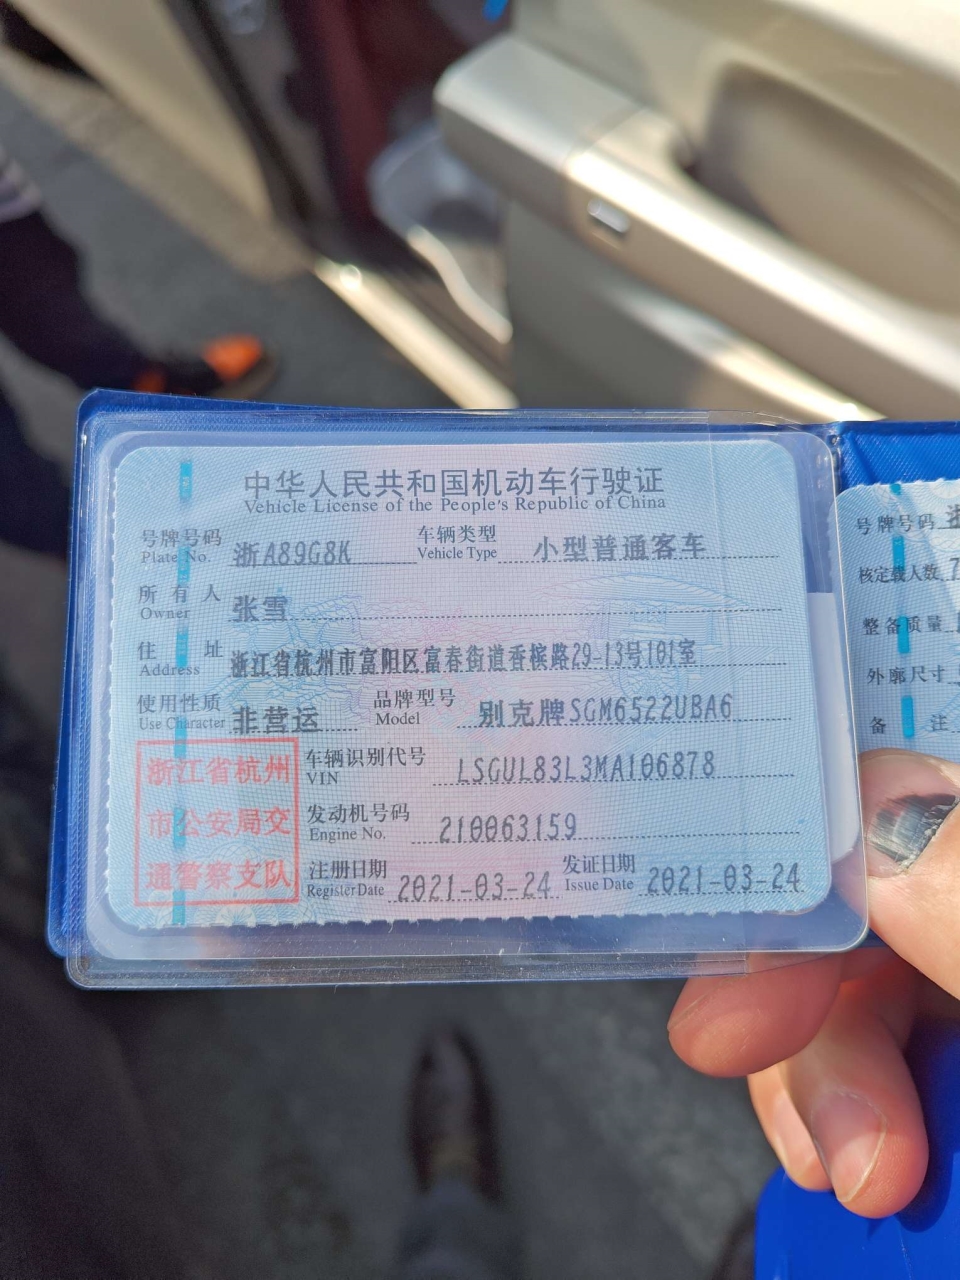 中华人民共和国机动车行驶证
Vehicle License of the People's Republic of China
号牌号码 浙A89G8K 车辆类型 小型普通客车
Plate No. Vehicle Type
所有人 张雪
Owner
住址 浙江省杭州市富阳区富春街道香槟路29-13号101室
Address
使用性质 非营运 品牌型号 别克牌SGM6522UBA6
Use Character Model
浙江省杭州
市公安局交
通警察支队
车辆识别代号 LSGUL83L3MA106878
VIN
发动机号码 210063159
Engine No.
注册日期 2021-03-24 发证日期 2021-03-24
Register Date Issue Date
号牌号码 浙
核定载人数 7
整备质量
外廓尺寸
备注